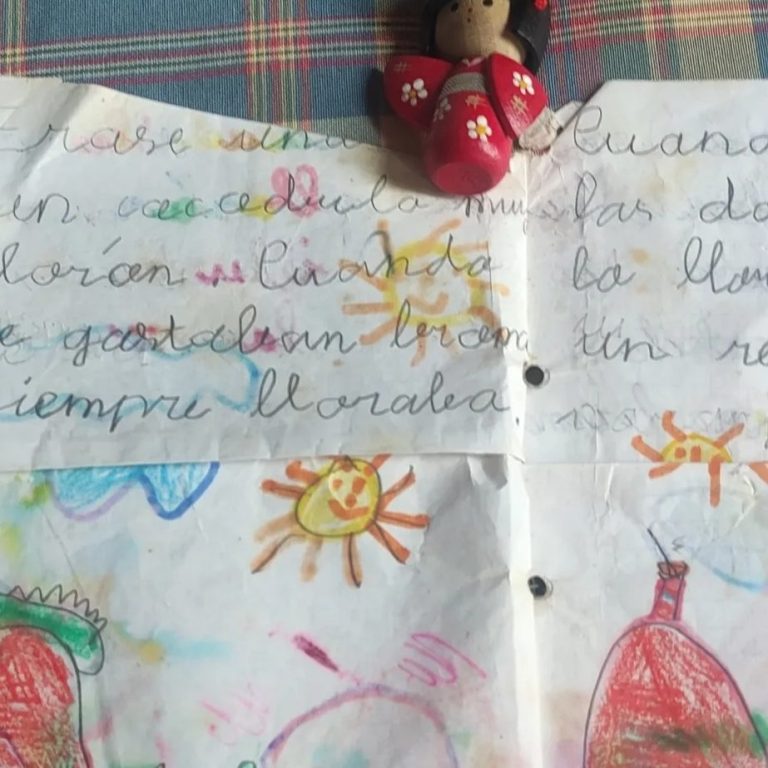 Erase una
un cocodrilo muy
lorón. Cuando
e gastaban broma
iempre lloraba.
Cuand
las do
lo lla
Un re